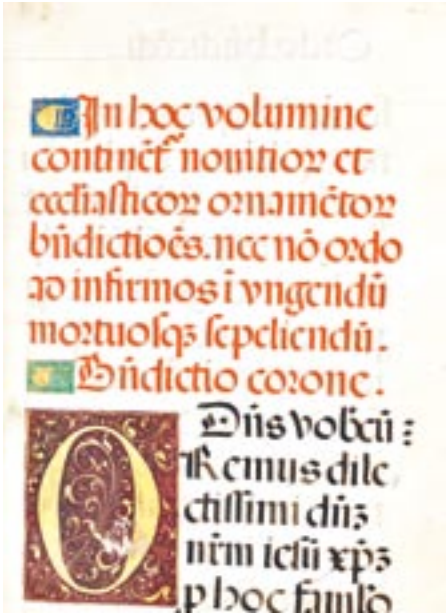 In hoc volumine
continēt᷑ novitioꝝ et
eccliasticoꝝ ornamētoꝝ
bn̄dictiões. nec nō ordo
ad infirmos ī vngendū
mortuosqꝫ sepeliendū.
Bn̄dictio corone.
Dn̄s vobcū:
ORemus dile
ctissimi dn̄ꝫ
nr̄m iesū xp̄ꝫ
p hoc famulo